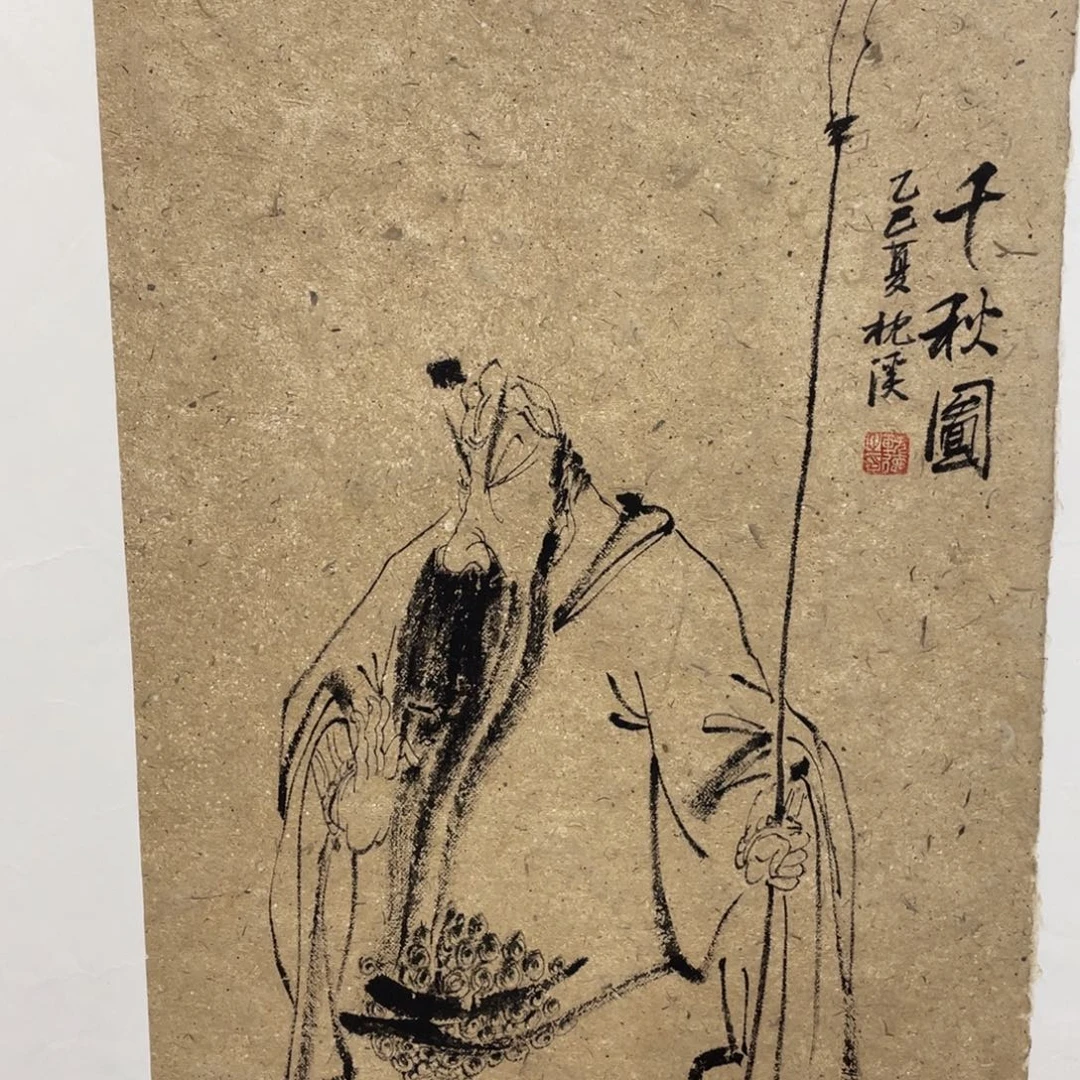 千秋圖
乙巳夏 枕溪